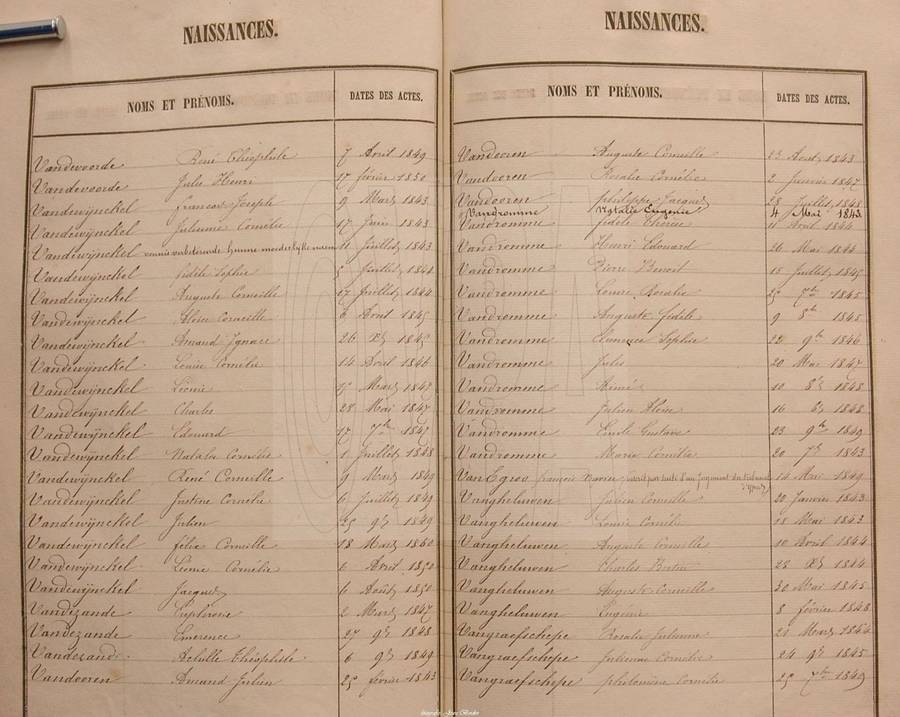 NAISSANCES.
NOMS ET PRÉNOMS. DATES DES ACTES.
Vandevoorde René Théophile 7 Avril 1849
Vandevoorde Jules Henri 17 février 1850
Vandewÿnckel françois Joseph 9 Mars 1843
Vandewÿnckel Julienne Cornélie 17 Juin 1843
Vandewÿnckel 11 Juillet 1843
Vandewÿnckel fidèle Sophie 5 Juillet 1844
Vandewÿnckel Auguste Corneille 17 Juillet 1844
Vandewÿnckel Aloïse Corneille 6 Aout 1845
Vandewÿnckel Amand Ignace 26 1845
Vandewÿnckel Louise Cornélie 14 Avril 1846
Vandewÿnckel Léonie 15 Mars 1847
Vandewÿnckel Charles 28 Mai 1847
Vandewÿnckel Edouard 17 7bre 1847
Vandewÿnckel Natalie Cornélie 1 Juillet 1848
Vandewÿnckel René Corneille 9 Mars 1849
Vandewÿnckel Justine Cornélie 6 Juillet 1849
Vandewÿnckel Julien 25 9bre 1849
Vandewÿnckel félix Corneille 18 Mars 1850
Vandewÿnckel Léonie Cornélie 6 Avril 1850
Vandewÿnckel Jacques 6 Août 1850
Vandezande Euphrasie 2 Mars 1847
Vandezande Emerence 27 9bre 1848
Vandezande Achille Théophile 6 9bre 1849
Vandooren Amand Julien 25 février 1843
NAISSANCES.
NOMS ET PRÉNOMS. DATES DES ACTES.
Vandooren Auguste Corneille 23 Aout 1843
Vandooren Rosalie Cornélie 2 Janvier 1847
Vandooren philippe Jacques 28 Juillet 1848
Vandromme Natalie Eugenie 4 Mai 1843
Vandromme fidèle Thérèse 11 Avril 1844
Vandromme Henri Edouard 26 Mai 1844
Vandromme Pierre Benoit 15 Juillet 1845
Vandromme Louise Rosalie 25 7bre 1845
Vandromme Auguste fidèle 9 8bre 1845
Vandromme Sophie 22 9bre 1846
Vandromme Jules 20 Mai 1847
Vandromme Aimé 10 8bre 1848
Vandromme Julien Aloïse 16 1848
Vandromme Emile Gustave 23 9bre 1849
Vandromme Marie Cornélie 20 7bre 1843
VanEgroo françois Xavier inscrit par suite d'un jugement du tribunal d'Ypres 14 Mai 1849
Vangheluwen Julien Corneille 20 Janvier 1843
Vangheluwen Louise Cornélie 18 Mai 1843
Vangheluwen Auguste Corneille 10 Avril 1844
Vangheluwen Charles 28 1844
Vangheluwen Auguste Corneille 30 Mai 1845
Vangheluwen Eugénie 8 février 1848
Vangraefschepe Rosalie Julienne 21 Mars 1844
Vangraefschepe Julienne Cornélie 24 9bre 1845
Vangraefschepe philomène Cornélie 25 7bre 1849